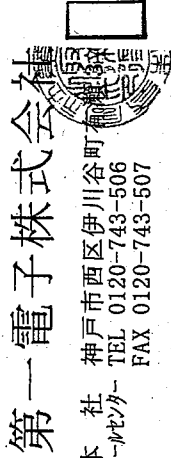 第一電子株式会社
本 社 神戸市西区伊川谷町有
ールセンター TEL 0120-743-506
FAX 0120-743-507